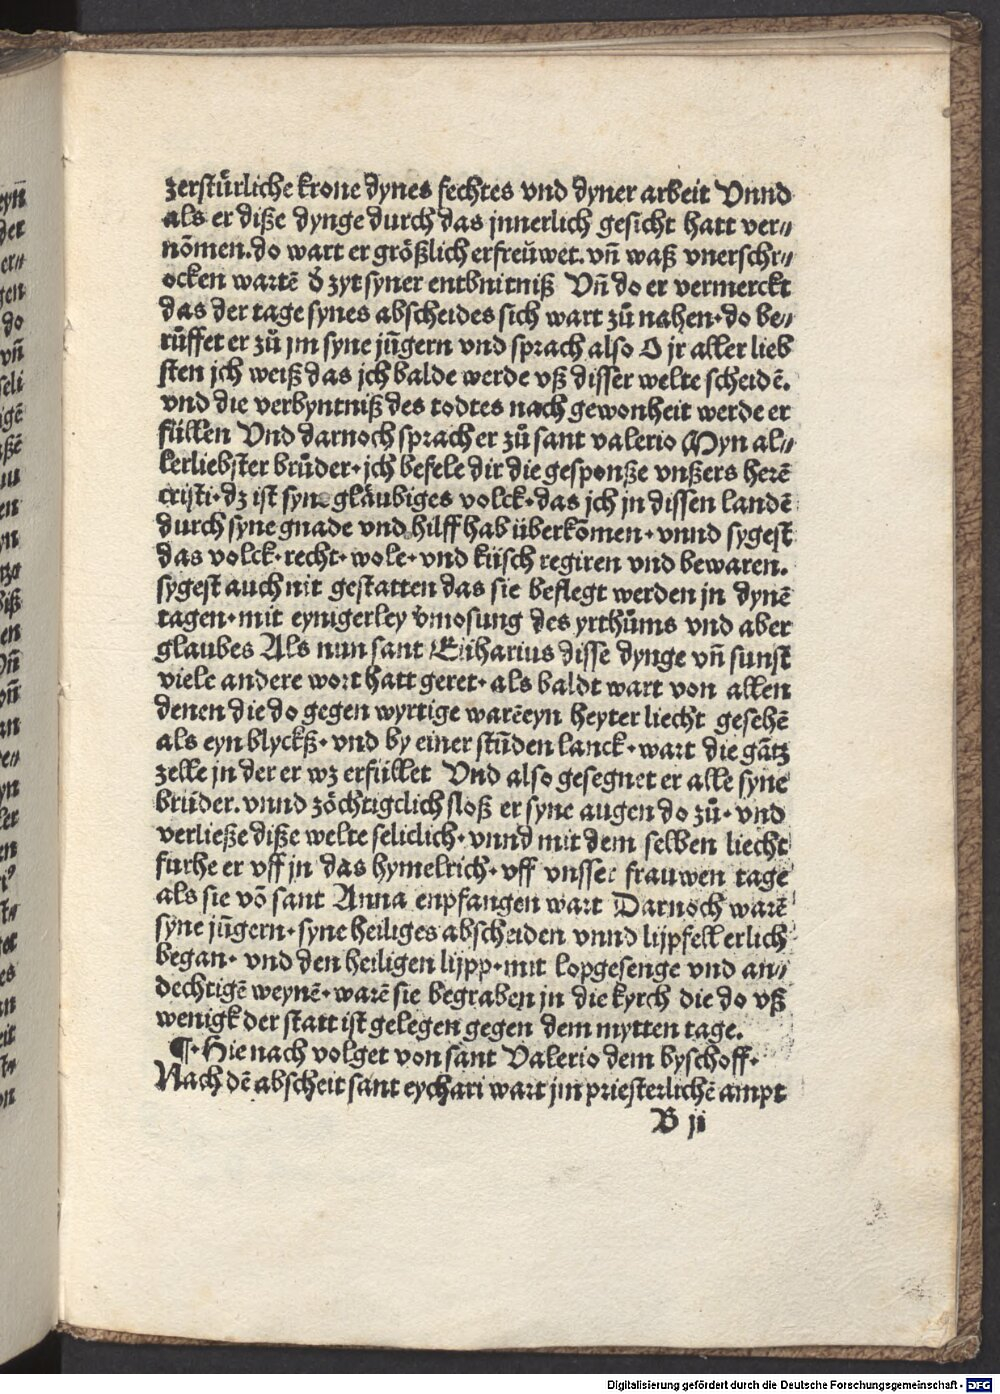 zerstürliche krone dynes fechtes vnd dyner arbeit Vnnd
als er diße dynge durch das jnnerlich gesicht hatt ver⸗
nōmen.do wart er größlich erfreüwet.vn̄ waß vnerschr⸗
ocken wartē d̕ zyt syner entbnitniß Vn̄ do er vermerckt
das der tage synes abscheides sich wart zů nahen·do be⸗
rüffet er zů jm syne jūgern vnd sprach also O jr aller lieb
sten jch weiß das jch balde werde vß disser welte scheidē.
vnd die verbyntniß des todtes nach gewonheit werde er
füllen Vnd darnoch sprach er zů sant valerio Myn al⸗
lerliebster brůder·jch befele dir die gesponße vnßers herē
cristi·dz ist syne gläubiges volck·das jch jn dissen landē
durch syne gnade vnd hilff hab überkōmen·vnnd sygest
das volck·recht·wole·vnd küsch regiren vnd bewaren.
sygest auch nit gestatten das sie beflegt werden jn dynē
tagen·mit eynigerley v̕mosung des yrthůms vnd aber
glaubes Als nun sant Eüharius disse dynge vn̄ sunst
viele andere wort hatt geret·als baldt wart von allen
denen die do gegen wyrtige warē eyn heyter liecht gesehē
als eyn blyckß·vnd by einer stūden lanck·wart die gātz
zelle jn der er wz erfüllet Vnd also gesegnet er alle syne
brüder.vnnd zöchtigclich sloß er syne augen do zů·vnd
verließe diße welte seliclich·vnnd mit dem selben liecht
furhe er vff jn das hymelrich·vff vnsser frauwen tage
als sie vō sant Anna enpfangen wart Darnoch warē
syne jūgern·syne heiliges abscheiden vnnd lijpfell erlich
began·vnd den heiligen lijpp·mit lopgesenge vnd an⸗
dechtigē weynē·warē sie begraben jn die kyrch die do vß
wenigk der statt ist gelegen gegen dem mytten tage.
¶·Hie nach volget von sant Valerio dem byschoff·
Nach dē abscheit sant eychari wart jm priesterlichē ampt
B ij
Digitalisierung gefördert durch die Deutsche Forschungsgemeinschaft - DFG